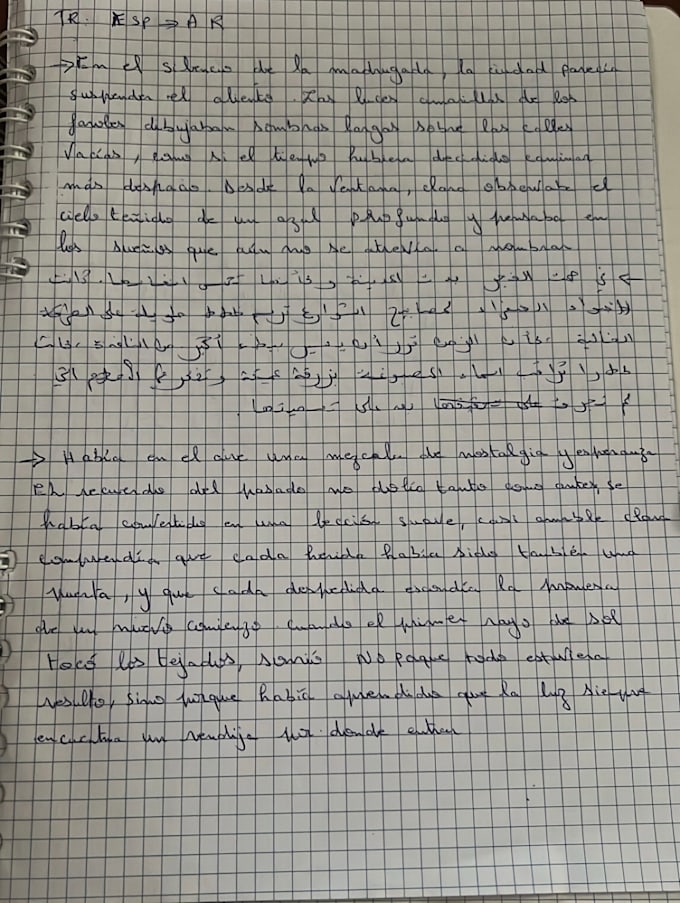 TR: ESP ⇒ AR
→ En el silencio de la madrugada, la ciudad parecía
suspender el aliento. Las luces amarillas de los
faroles dibujaban sombras largas sobre las calles
vacías, como si el tiempo hubiera decidido caminar
más despacio. Desde la ventana, clara observaba el
cielo teñido de un azul profundo y pensaba en
los sueños que aún no se atrevía a nombrar
في صمت الفجر بدت المدينة وكأنها تحبس أنفاسها. كانت
الأضواء الصفراء لمصابيح الشوارع ترسم طويلة على
الخالية الزمن قرر أن يمشي ببطء أكثر من النافذة كانت
كلارا تراقب السماء المصبوغة بزرقة عميقة و في
لم تجرؤ بعد على تسميتها.
→ Había en el aire una mezcala de nostalgia y esperanza
El recuerdo del pasado no dolía tanto como antes, se
había convertido en una lección suave, casi amable clara
comprendía que cada herida había sido también una
puerta, y que cada despedida escondía la promesa
de un nuevo comienzo. cuando el primer rayo de sol
tocó los tejados, sonrió No poque todo estuviera
resulto, sino porque había aprendido que la luz siempre
encuentra un rendija por donde entrar